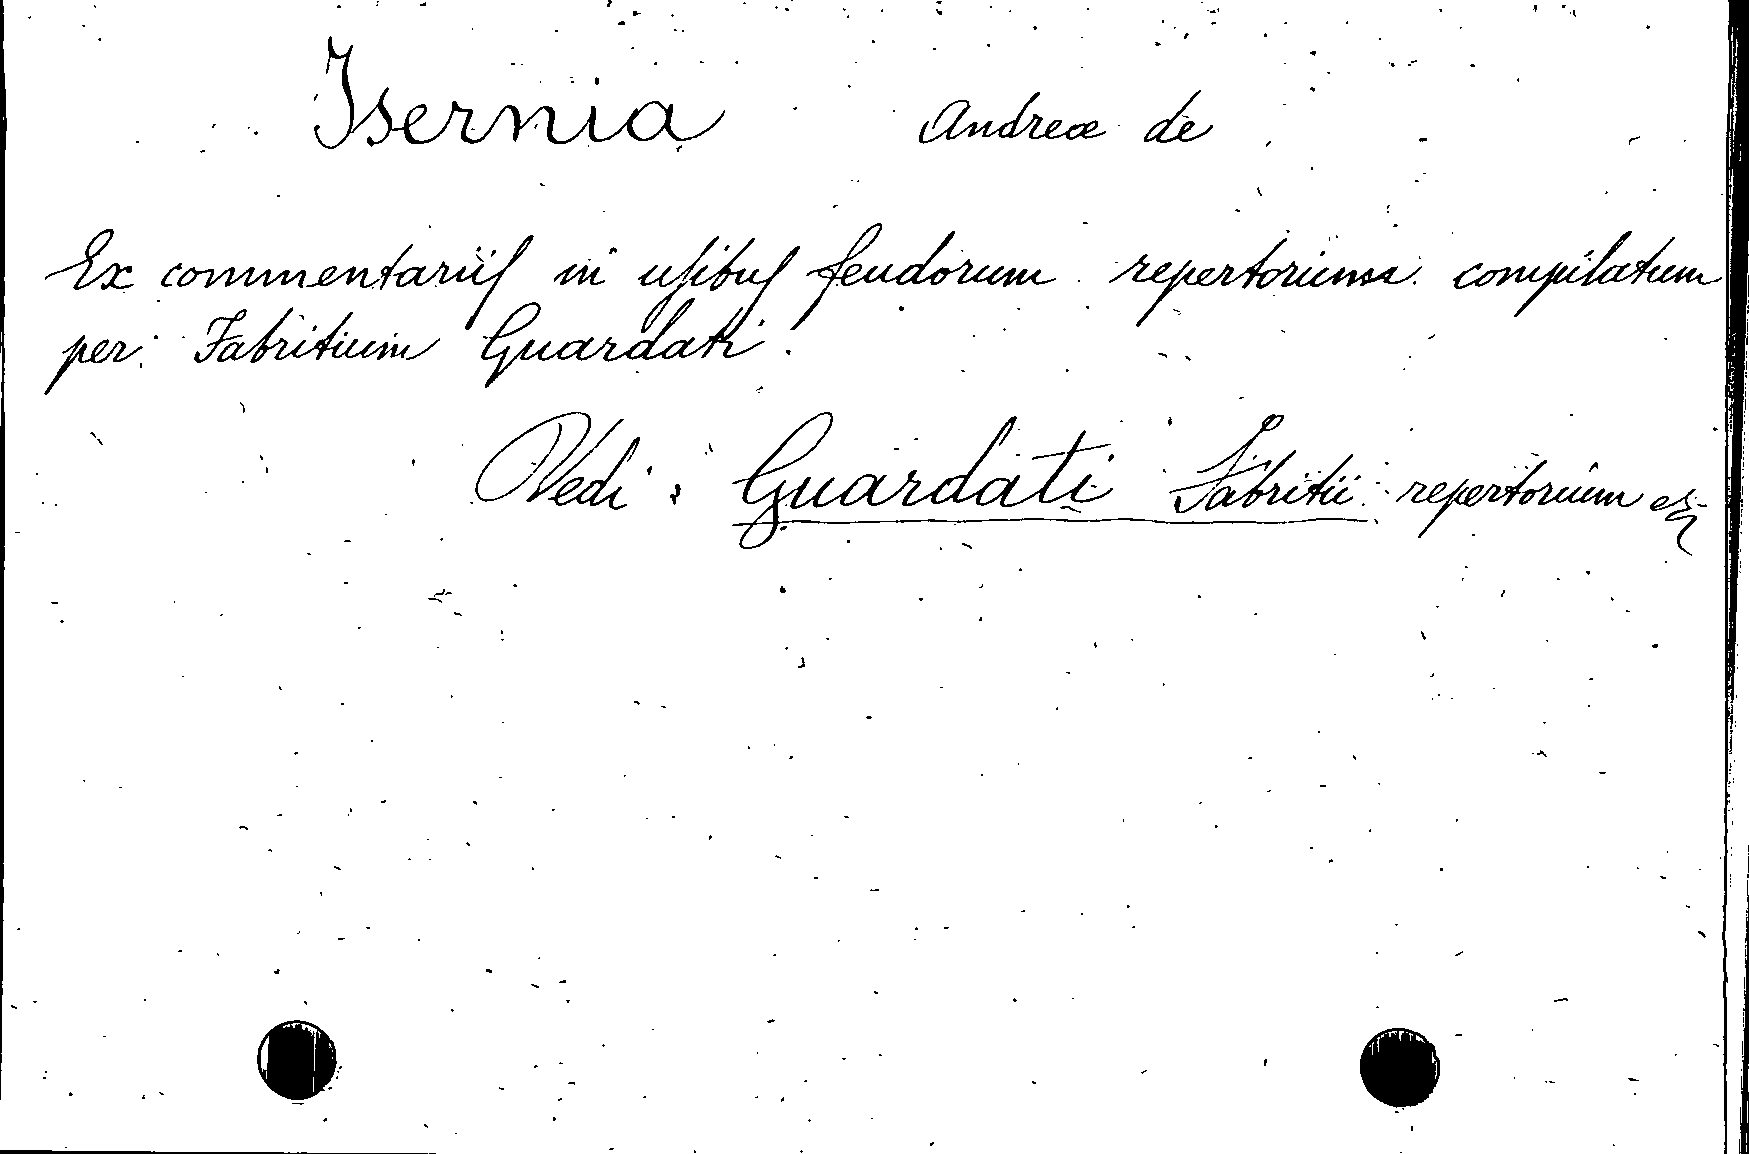 Isernia Andreæ de
Ex commentariis in usibus feudorum repertorium compilatum
per Fabritium Guardati.
Vedi: Guardati Fabritii repertorium